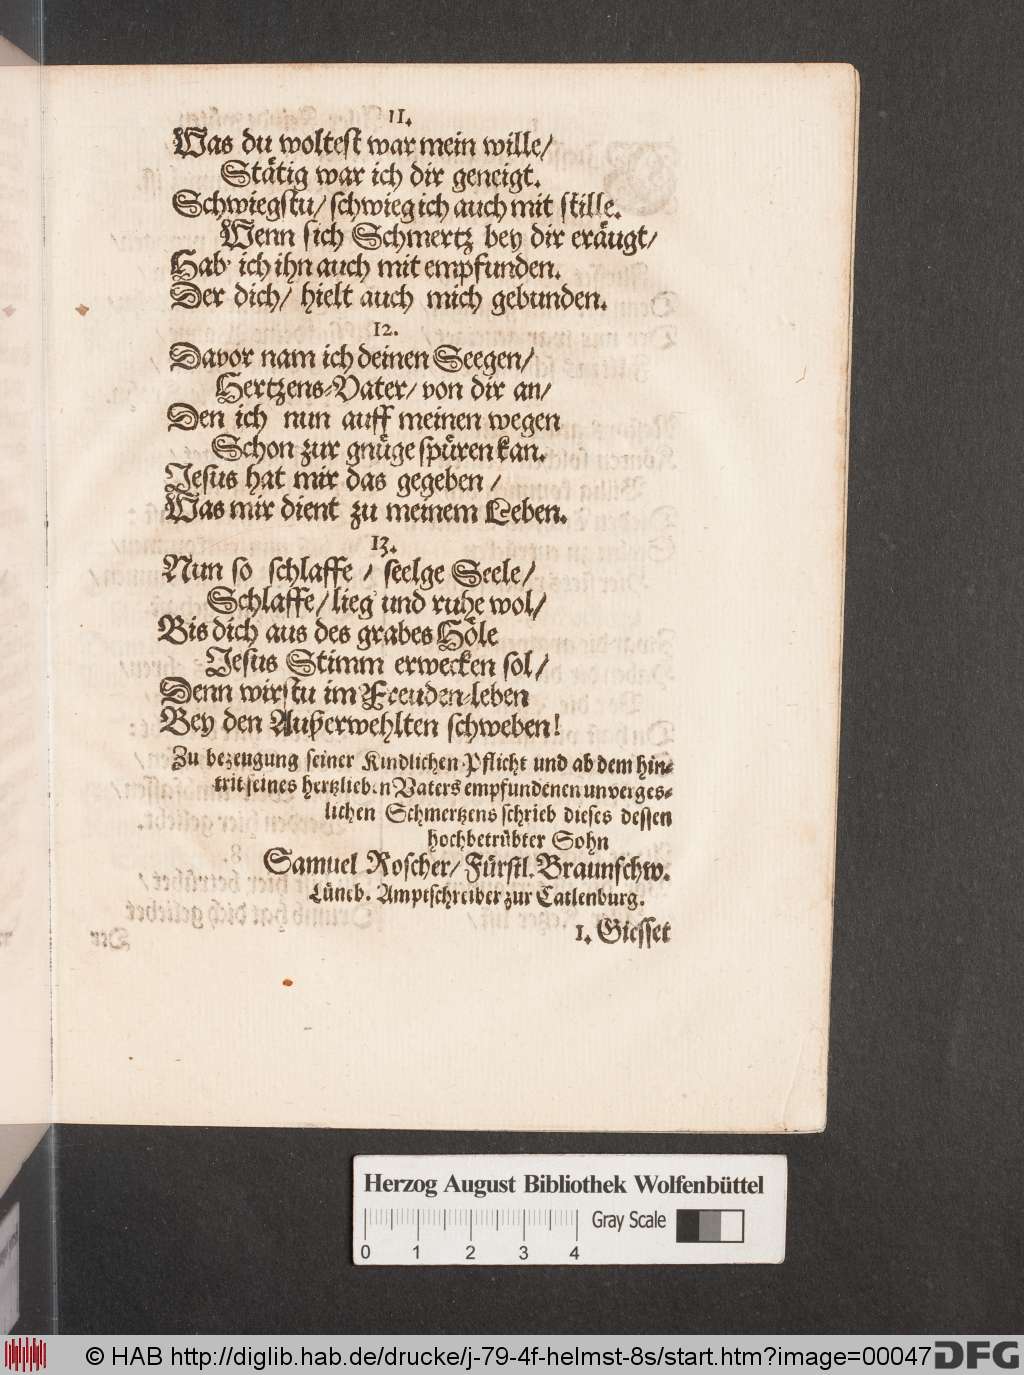 11.
Was du woltest war mein wille/
Stätig war ich dir geneigt.
Schwiegstu/ schwieg ich auch mit stille.
Wenn sich Schmertz bey dir eräugt/
Hab' ich ihn auch mit empfunden.
Der dich/ hielt auch mich gebunden.
12.
Davor nam ich deinen Seegen/
Hertzens-Vater/ von dir an/
Den ich nun auff meinen wegen
Schon zur gnüge spüren kan.
Jesus hat mir das gegeben/
Was mir dient zu meinem Leben.
13.
Nun so schlaffe/ seelge Seele/
Schlaffe/ lieg' und ruhe wol/
Bis dich aus des grabes Höle
Jesus Stimm erwecken sol/
Denn wirstu im Freuden-leben
Bey den Außerwehlten schweben!
Zu bezeugung seiner Kindlichen Pflicht und ab dem hin-
trit seines hertzlieben Vaters empfundenen unverges-
lichen Schmertzens schrieb dieses dessen
hochbetrübter Sohn
Samuel Roscher/ Fürstl. Braunschw.
Lüneb. Amptschreiber zur Catlenburg.
1. Giesset
Herzog August Bibliothek Wolfenbüttel
Gray Scale
0 1 2 3 4
© HAB http://diglib.hab.de/drucke/j-79-4f-helmst-8s/start.htm?image=00047
DFG